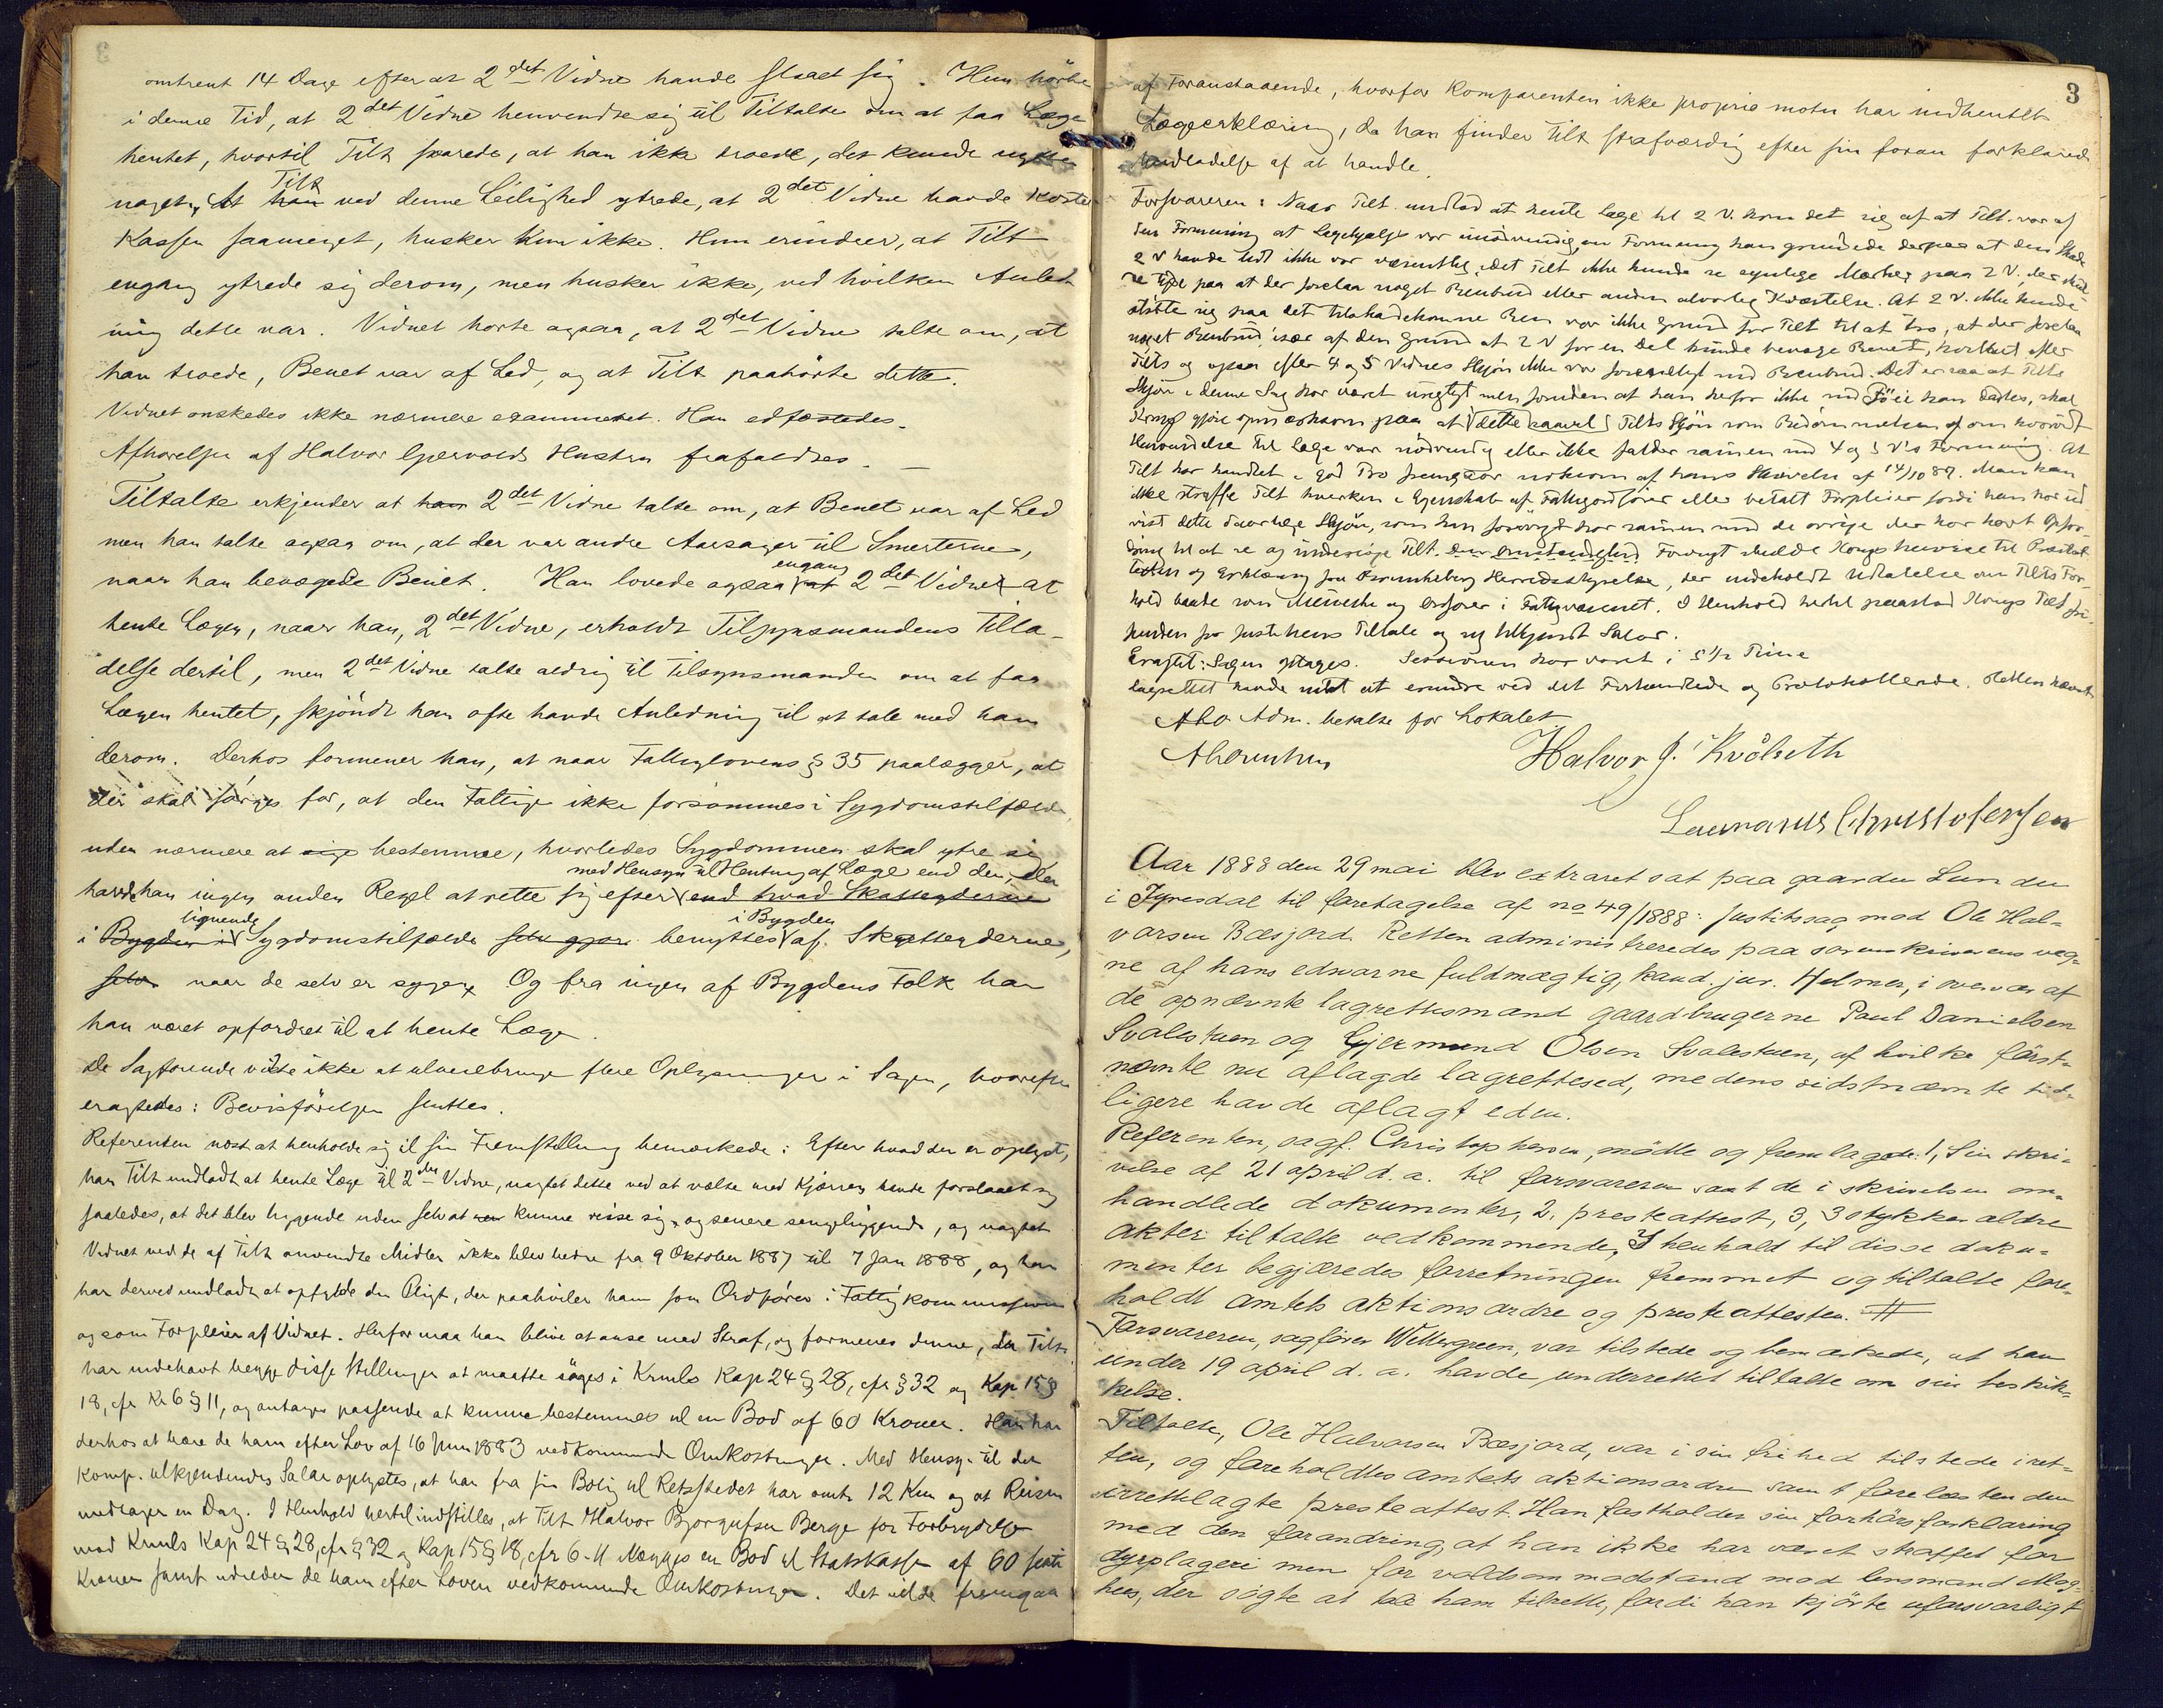 omtrent 14 Dage efter at 2det Vidne havde slaaet sig. Hun hørte
i denne Tid, at 2det Vidne henvendte sig til Tiltalte om at faa Læge
hentet, hvortil Tilt svarede, at han ikke troede, det kunde nytte
noget. At han Tilt ved denne Leilighed ytrede, at 2det Vidne havde kostet
Kassen saameget, husker hun ikke. Hun erindrer, at Tilt
engang ytrede sig derom, men husker ikke, ved hvilken Anled
ning dette var. Vidnet hørte ogsaa, at 2det Vidne talte om, at
han troede, Benet var af Led, og at Tilt paahørte dette.
Vidnet ønskedes ikke nærmere examineret. Han edfæstedes.
Afhørelsen af Halvor Gjervolds Hustru frafaldtes. —
Tiltalte erkjender at han 2det Vidne talte om, at Benet var af Led
men han talte ogsaa om, at der var andre Aarsager til Smerterne,
naar han bevægede Benet. Han lovede ogsaa engang at 2det Vidnet at
hente Lægen, naar han, 2det Vidne, erholdt Tilsynsmandens Tilla-
delse dertil, men 2det Vidne talte aldrig til Tilsynsmanden om at faa
Lægen hentet, skjøndt han ofte havde Anledning til at tale med ham
derom. Derhos formener han, at naar Fattiglovens § 35 paalægger, at
der skal sørges for, at den Fattige ikke forsømmes i Sygdomstilfælde,
uden nærmere at sige bestemme, hvorledes Sygdommen skal ytre sig
havde han ingen anden Regel at rette sig efter med Hensyn til Hentning af Læge end den, der end hvad Skatteyderne
i Bygden i lignende Sygdomstilfælde selv gjøre benyttes i Bygden af Skatteyderne,
selv naar de selv er syge. Og fra ingen af Bygdens Folk har
han været opfordret til at hente Læge.
De Sagførende vidste ikke at tilveiebringe flere Oplysninger i Sagen, hvorefter
eragtedes: Bevisførelsen sluttes.
Referenten næst at henholde sig til sin Fremstilling bemærkede: Efter hvad der er oplyst,
har Tilt undladt at hente Læge til 2det Vidne, uagtet dette ved at vælte med Kjærren havde forslaaet sig
saaledes, at det blev liggende uden selv at kunne reise sig, og senere sengeliggende, og uagtet
Vidnet ved de af Tilt anvendte Midler ikke blev bedre fra 9 Oktober 1887 til 7 Jan 1888, og han
har derved undladt at opfylde den Pligt, der paahviler ham som Ordfører i Fattigkommissionen
og som Forpleier af Vidnet. Herfor maa han blive at anse med Straf, og formenes denne, da Tilt
har indehavt begge disse Stillinger at maatte søges i Krmls Kap 24 § 28, cfr § 32 og Kap 15 §
18, cfr K 6 § 11, og antages passende at kunne bestemmes til en Bod af 60 Kroner. Han har
derhos at bære de ham efter Lov af 16 Juni 1883 vedkommende Omkostninger. Med Hensyn til det
Komp. tilkjendendes Salær oplystes, at han fra sin Bolig til Retsstedet har omtr 12 Km og at Reisen
medtager en Dag. I Henhold hertil indstilles, at Tilt Halvor Bjorgufsen Berge for Forbrydelse
mod Krmls Kap 24 § 28, cfr § 32 og Kap 15 § 18, cfr 6-11 ilægges en Bod til Statskassen af 60 sexti
Kroner samt udreder de ham efter Loven vedkommende Omkostninger. Det vilde fremgaa
3
af Foranstaaende, hvorfor Komparenten ikke proprio motu har indhentet
Lægeerklæring, da han finder Tilt strafværdig efter sin foran forklarede
Undladelse af at handle.
Forsvareren: Naar Tilt. undlod at hente Læge til 2 V. kom det sig af at Tilt. var af
den Formening at Lægehjælp var unødvendig, en Formening han grundede derpaa at den Skade
2 V havde lidt ikke var væsentlig, idet Tilt ikke kunde se synlige Mærker paa 2 V, der skul
de tyde paa at der forelaa noget Benbrud eller anden alvorlig Kvæstelse. At 2 V. ikke kunde
støtte sig paa det tilskadekomne Ben var ikke Grund for Tilt til at tro, at der forelaa
noget Benbrud især af den Grund at 2 V for en Del kunde bevæge Benet, hvilket efter
Tilts og ogsaa efter 4 og 5 Vidnes Skjøn ikke var foreneligt med Benbrud. Det er saa at Tilts
Skjøn i denne Sag har været urigtigt men foruden at han herfor ikke med Føie kan dadles, skal
Komp gjøre opmærksom paa at dette saavel Tilts Skjøn som Bedømmelsen af om hvorvidt
Henvendelse til Læge var nødvendig eller ikke falder sammen med 4 og 5 V's Formening. At
Tilt har handlet i god Tro fremgaar noksom af hans Skrivelse af 14/10 87. Man kan
ikke straffe Tilt hverken i Egenskab af Fattigordfører eller betalt Forpleier fordi han har ud
vist dette daarlige Skjøn, som han forøvrigt har sammen med de øvrige der har havt Opfor
dring til at se og undersøge Tilt. Forøvrigt skulde Komp henvise til Præsteat
testen og Erklæring fra Brunkeberg Herredsstyrelse, der indeholdt Udtalelse om Tilts For
hold baade som Menneske og Ordfører i Fattigvæsenet. I Henhold hertil paastod Komp Tilt fri
funden for Justitiens Tiltale og sig tilkjendt Salær.
Eragtet: Sagen optages. Sessionen har varet i 5 1/2 Time
Lagrettet havde intet at erindre ved det Forhandlede og Protokollerede. Retten hævet
Adm. betalte for Lokalet
Halvor J. Kvålseth
Laurantius Christofersen
Aar 1888 den 29 mai blev extraret sat paa gaarden Lunden
i Fyresdal til foretagelse af no 49/1888: Justitssag mod Ole Hal-
vorsen Bæsjord. Retten administreredes paa sorenskriverens veg-
ne af hans edsvorne fuldmægtig, kand. jur. Holmer, i overvær af
de opnævnte lagrettesmænd gaardbrugerne Paul Danielsen
Svalestuen og Gjermund Olsen Svalestuen, af hvilke først-
nævnte nu aflagde lagrettesed, medens sidstnævnte tid-
ligere havde aflagt eden.
Referenten, sagf. Christophersen, mødte og fremlagde: 1, Sin skri-
velse af 21 april d. a. til forsvareren samt de i skrivelsen om-
handlede dokumenter, 2, presteattest, 3, 3 stykker ældre
akter tiltalte vedkommende, I henhold til disse doku-
menter begjæredes forretningen fremmet og tiltalte fore-
holdt amtets aktionsordre og presteattesten. #
Forsvareren, sagfører Wettergreen, var tilstede og bemærkede, at han
under 19 april d. a. havde underrettet tiltalte om sin beskik-
kelse.
Tiltalte, Ole Halvorsen Bæsjord, var i sin frihed tilstede i ret-
ten, og foreholdtes amtets aktionsordre samt forelæstes den
irettelagte presteattest. Han fastholder sin forhørsforklaring
med den forandring, at han ikke har været straffet for
dyrplageri men for voldsom modstand mod lensmand Mog-
hus, der søgte at tale ham tilrette, fordi han kjørte uforsvarligt